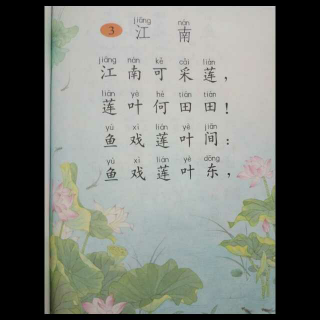 jiāng nán
3 江 南
jiāng nán kě cǎi lián
江 南 可 采 莲，
lián yè hé tián tián
莲 叶 何 田 田！
yú xì lián yè jiān
鱼 戏 莲 叶 间：
yú xì lián yè dōng
鱼 戏 莲 叶 东，